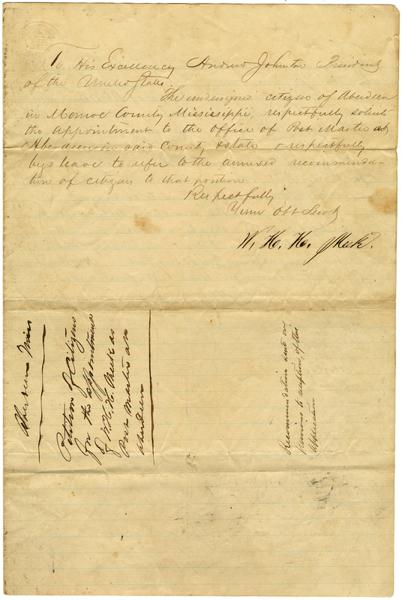 To His Excellency Andrew Johnston President
of the United States
The undersigned citizen of Aberdeen
in Monroe County Mississippi, respectfully solicits
the appointment to the office of Post Master at
Aberdeen in said County & state & respectfully
begs leave to refer to the annexed recommenda-
tion of citizens to that position
Respectfully
Your Obt Servt
W. H. H.
Aberdeen Miss
Petition of Citizens
for the appointment
of W. H. H. as
Post Master at
Aberdeen
Recommendation sent on
previous to
application